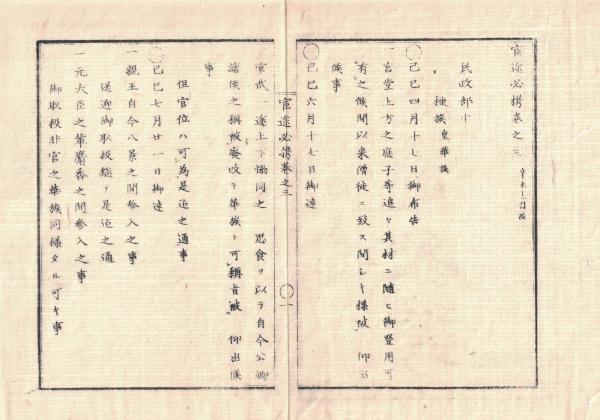 官途必携巻之三
民政部中
種族 皇華族
〇己巳四月十七日御布告
一宮堂上方之庶子等追々其材ニ随ヒ御登用可
有之候間以来僧徒ニ致ス間シキ様被 仰出
候事
〇己巳六月十七日御達
官途必携巻之三 〇一
官武一途上下協同之 思食ヲ以テ自今公卿
諸侯之稱被廃改テ華族ト可稱旨被 仰出候
事
但官位ハ可為是迄之通事
〇己巳七月廿一日御達
一親王自今八景之間参入之事
送迎御取扱総テ是迄之通
一元大臣之輩麝香之間参入之事
御取扱非官之華族同様タル可キ事